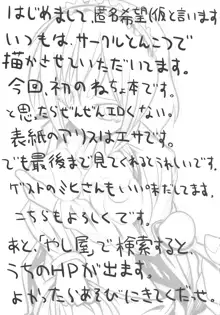 はじめまして、匿名希望(仮)と言います
いつもは、サークルとんこつで
描かさせていただいてます。
今回、初のねちょ本です。
と思ったらぜんぜんエロくない。
表紙のアリスはエサです。
でも最後まで見てくれるとうれしいです。
ゲストのミヒさんもいい味だしてます。
こちらもよろしくです。
あと、「やし屋」で検索すると、
うちのHPが出ます。
よかったらあそびにきしくだせ。